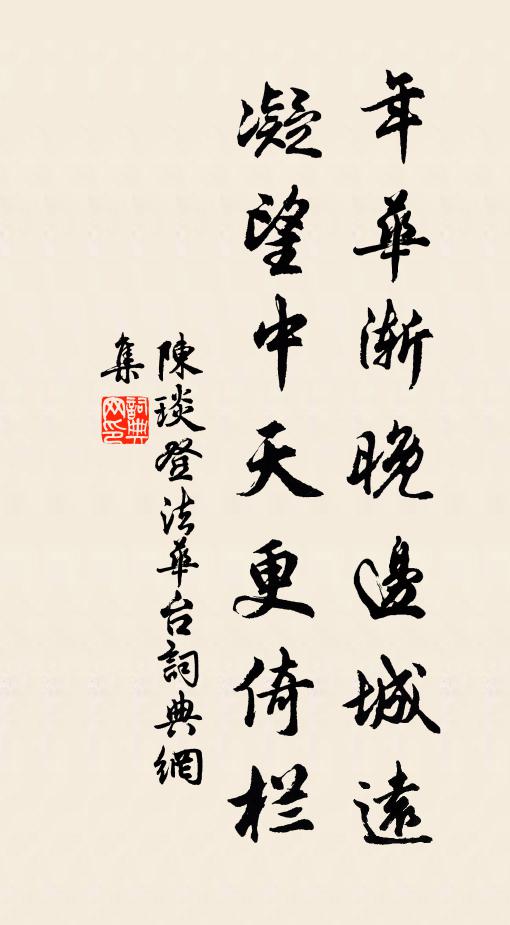 年華漸晚邊城遠
凝望中天更倚栏
陳琰登法華台詞典網
集
詞典
网印